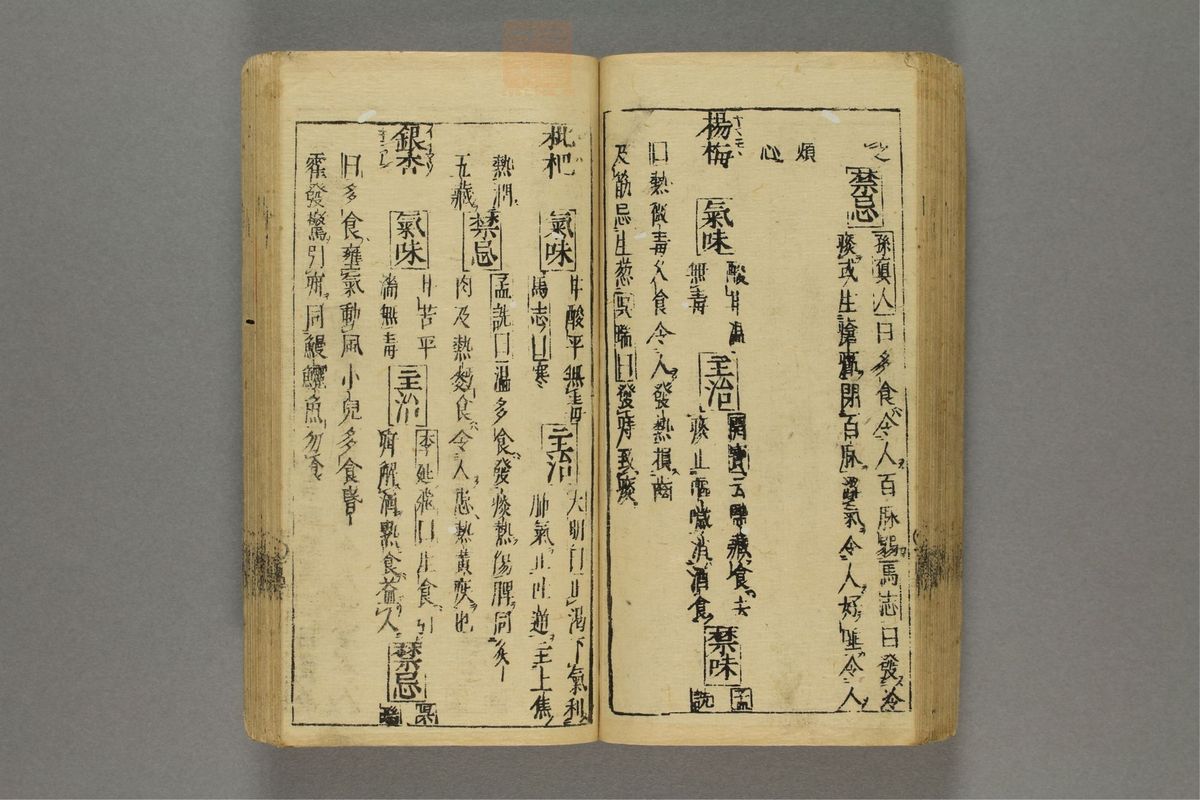 禁忌 孫真人曰多食令人百脉弱馬志曰發冷
痰或生瘡癤閉百脉澀氣令人好唾令人
煩
心
楊梅 氣味 酸甘温
無毒 主治 開寶云鹽藏食去
痰止嘔噦消酒食 禁味 孟
詵
曰熱微毒久食令人發熱損齒
及筋忌生葱冥瑞曰發瘡致痰
枇杷 氣味 甘酸平無毒
馬志曰寒 主治 大明曰止渴下氣利
肺氣止吐逆主上焦
熱潤
五藏 禁忌 孟詵曰温多食發痰熱傷脾同炙
肉及熱麪食令人患熱黃疾也
銀杏 氣味 甘苦平
濇無毒 主治 李延飛曰生食引
疳解酒熟食益人 禁忌
曰多食壅氣動風小兒多食昏
霍發驚引疳同鰻鱺魚勿食